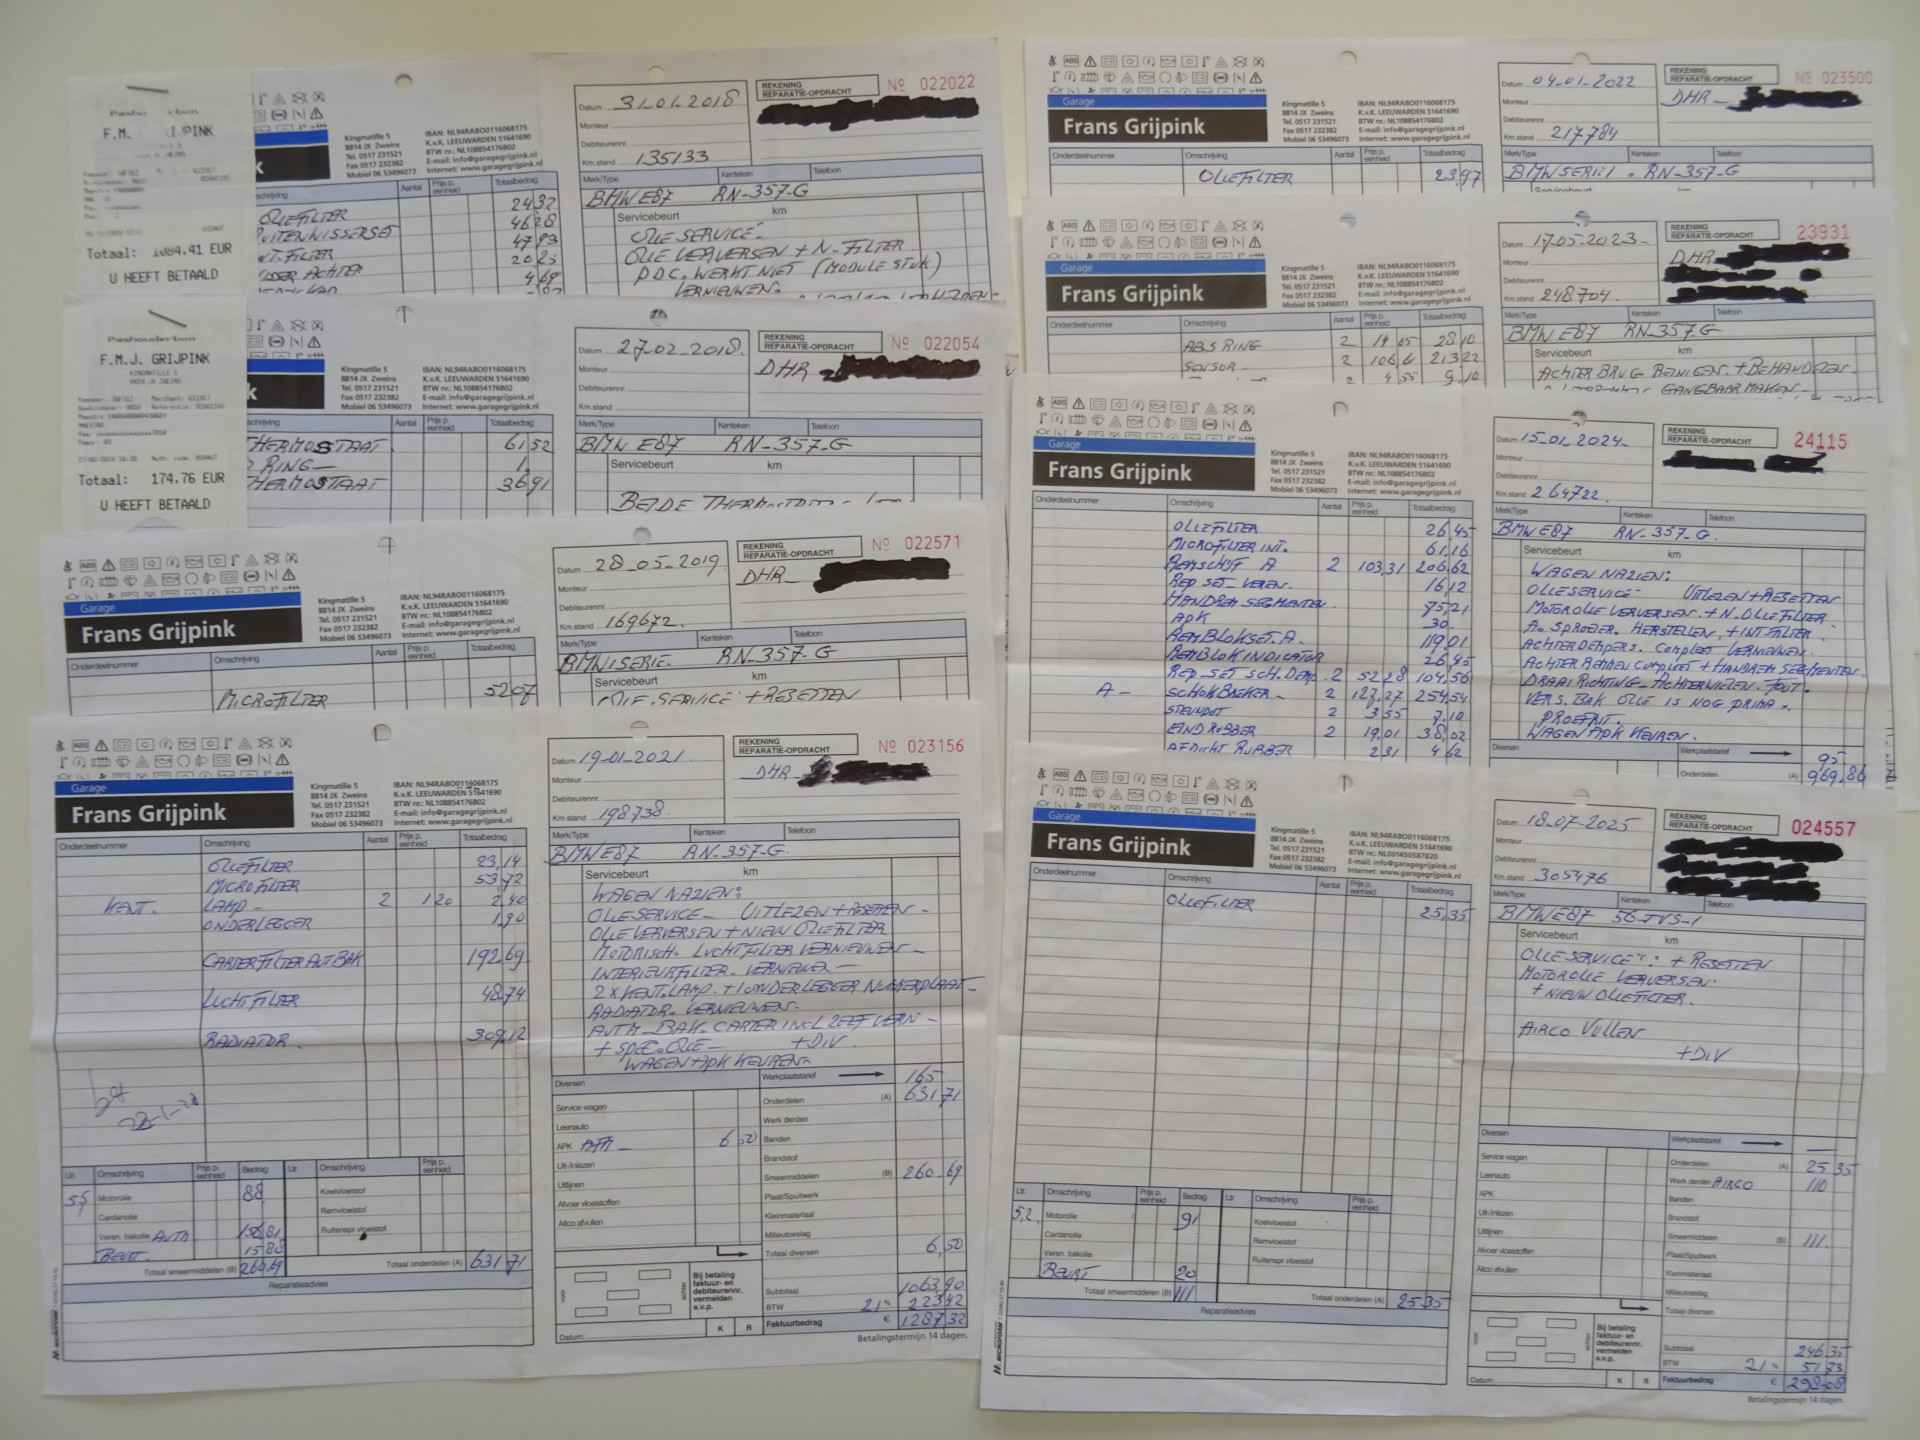 F.M.J. GRIJPINK
Totaal: 1084.41 EUR
U HEEFT BETAALD
Kingmatille 5
8814 JX Zweins
Tel. 0517 231521
Fax 0517 232382
Mobiel 06 53496073
IBAN: NL94RABO0116068175
K.v.K. LEEUWARDEN 51641690
BTW nr.: NL108854176802
E-mail: info@garagegrijpink.nl
Internet: www.garagegrijpink.nl
Aantal Prijs p. eenheid Totaalbedrag
OLIEFILTER 24 32
RUITENWISSERSET 46 28
47 93
20 25
4 69
Datum 31-01-2018
Monteur
Debiteurennr.
Km.stand 135133
REKENING
REPARATIE-OPDRACHT
Nº 022022
Merk/Type Kenteken Telefoon
BMW E87 RN-357-G
Servicebeurt km
OLIE SERVICE:
OLIE VERVERSEN + N-FILTER
P.D.C. WERKT NIET (MODULE STUK)
VERNIEUWEN.
Pashouderbon
F.M.J. GRIJPINK
KINGMATILLE 5
8814 JX ZWEINS
Totaal: 174.76 EUR
U HEEFT BETAALD
Kingmatille 5
8814 JX Zweins
Tel. 0517 231521
Fax 0517 232382
Mobiel 06 53496073
IBAN: NL94RABO0116068175
K.v.K. LEEUWARDEN 51641690
BTW nr.: NL108854176802
E-mail: info@garagegrijpink.nl
Internet: www.garagegrijpink.nl
Aantal Prijs p. eenheid Totaalbedrag
THERMOSTAAT 61 52
RING 1
THERMOSTAAT 36 91
Datum 27-02-2018.
Monteur
Debiteurennr.
Km.stand
REKENING
REPARATIE-OPDRACHT
Nº 022054
DHR
Merk/Type Kenteken Telefoon
BMW E87 RN-357-G
Servicebeurt km
BEIDE
ABS
Garage
Frans Grijpink
Kingmatille 5
8814 JX Zweins
Tel. 0517 231521
Fax 0517 232382
Mobiel 06 53496073
IBAN: NL94RABO0116068175
K.v.K. LEEUWARDEN 51641690
BTW nr.: NL108854176802
E-mail: info@garagegrijpink.nl
Internet: www.garagegrijpink.nl
Onderdeelnummer Omschrijving Aantal Prijs p. eenheid Totaalbedrag
MICROFILTER 52 07
Datum 28-05-2019
Monteur
Debiteurennr.
Km.stand 169672.
REKENING
REPARATIE-OPDRACHT
Nº 022571
DHR
Merk/Type Kenteken Telefoon
BMW 1 SERIE. RN-357-G
Servicebeurt km
OLIE SERVICE + RESETTEN
ABS
Garage
Frans Grijpink
Kingmatille 5
8814 JX Zweins
Tel. 0517 231521
Fax 0517 232382
Mobiel 06 53496073
IBAN: NL94RABO0116068175
K.v.K. LEEUWARDEN 51641690
BTW nr.: NL108854176802
E-mail: info@garagegrijpink.nl
Internet: www.garagegrijpink.nl
Onderdeelnummer Omschrijving Aantal Prijs p. eenheid Totaalbedrag
OLIEFILTER 23,14
MICROFILTER 53,72
KENT. LAMP 2 1 20 2,40
ONDERLEGGER 1,90
CARTERFILTER AUT BAK 192,69
LUCHTFILTER 48,74
RADIATOR 309,12
Ltr. Omschrijving Prijs p. eenheid Bedrag Ltr. Omschrijving Prijs p. eenheid
Motorolie 88 Koelvloeistof
Cardanolie Remvloeistof
Versn. bakolie AUTO 156,81 Ruitenspr.vloeistof
15,88
Totaal smeermiddelen (B) 260,69 Totaal onderdelen (A) 631 71
Reparatieadvies
Datum 19-01-2021
Monteur
Debiteurennr.
Km.stand 198738.
REKENING
REPARATIE-OPDRACHT
Nº 023156
DHR
Merk/Type Kenteken Telefoon
BMW E87 RN-357-G.
Servicebeurt km
WAGEN NAZIEN:
OLIE SERVICE - UITLEZEN + RESETTEN -
OLIE VERVERSEN + NIEUW OLIEFILTER
MOTORISCH. LUCHTFILTER VERNIEUWEN -
INTERIEURFILTER VERNIEUWEN -
2 X KENT. LAMP. + 1 ONDERLEGGER NUMMERPLAAT
RADIATOR. VERNIEUWEN.
AUTM. BAK. CARTER INCL ZEEF VERN -
+ SPEC. OLIE + DIV.
WAGEN + APK KEUREN.
Diversen Werkplaatstarief 165
Service-wagen Onderdelen (A) 631 71
Leenauto Werk derden
APK 6 50 Banden
Uit-/inlezen Brandstof
Uitlijnen Smeermiddelen (B) 260 69
Afvoer vloeistoffen Plaat/Spuitwerk
Airco afvullen Kleinmateriaal
Milieutoeslag
Totaal diversen 6,50
Subtotaal 1063,90
BTW 21 % 223,42
Faktuurbedrag € 1287,32
Bij betaling faktuur- en debiteurennr. vermelden s.v.p.
Datum: K R
Betalingstermijn 14 dagen.
ABS
Garage
Frans Grijpink
Kingmatille 5
8814 JX Zweins
Tel. 0517 231521
Fax 0517 232382
Mobiel 06 53496073
IBAN: NL94RABO0116068175
K.v.K. LEEUWARDEN 51641690
BTW nr.: NL108854176802
E-mail: info@garagegrijpink.nl
Internet: www.garagegrijpink.nl
Onderdeelnummer Omschrijving Aantal Prijs p. eenheid Totaalbedrag
OLIEFILTER 23,97
Datum 04-01-2022
Monteur
Debiteurennr.
Km.stand 217784
REKENING
REPARATIE-OPDRACHT
023500
DHR
Merk/Type Kenteken Telefoon
BMW SERIE 1. RN-357-G
ABS
Garage
Frans Grijpink
Kingmatille 5
8814 JX Zweins
Tel. 0517 231521
Fax 0517 232382
Mobiel 06 53496073
IBAN: NL94RABO0116068175
K.v.K. LEEUWARDEN 51641690
BTW nr.: NL108854176802
E-mail: info@garagegrijpink.nl
Internet: www.garagegrijpink.nl
Onderdeelnummer Omschrijving Aantal Prijs p. eenheid Totaalbedrag
ABS RING 2 14 05 28 10
SENSOR 2 106,61 213,22
2 4 55 9 10
Datum 17-05-2023
Monteur
Debiteurennr.
Km.stand 248704.
REKENING
REPARATIE-OPDRACHT
23931
DHR
Merk/Type Kenteken Telefoon
BMW E87 RN-357-G
Servicebeurt km
ACHTERBRUG REINIGEN. + BEHANDELEN
GANGBAAR MAKEN
ABS
Garage
Frans Grijpink
Kingmatille 5
8814 JX Zweins
Tel. 0517 231521
Fax 0517 232382
Mobiel 06 53496073
IBAN: NL94RABO0116068175
K.v.K. LEEUWARDEN 51641690
BTW nr.: NL108854176802
E-mail: info@garagegrijpink.nl
Internet: www.garagegrijpink.nl
Onderdeelnummer Omschrijving Aantal Prijs p. eenheid Totaalbedrag
OLIEFILTER 26,45
MICROFILTER INT. 61,16
REMSCHIJF A 2 103,31 206,62
REP SET VEREN. 16,12
HANDREM SEGMENTEN 75,21
APK 30
REMBLOKSET. A. 119,01
REMBLOK INDICATOR 26,45
REP_SET SCH. DEMP. 2 52,28 104,56
A- SCHOKBREKER 2 127,27 254,54
STEUNPUT 2 3,55 7,10
EINDRUBBER 2 19,01 38,02
AFDICHT RUBBER 2 31 4,62
Datum 15-01-2024
Monteur
Debiteurennr.
Km.stand 264722.
REKENING
REPARATIE-OPDRACHT
24115
Merk/Type Kenteken Telefoon
BMW E87 RN-357-G.
Servicebeurt km
WAGEN NAZIEN:
OLIE SERVICE - UITLEZEN + RESETTEN
MOTOROLIE VERVERSEN. + N. OLIEFILTER
A. SPROEIER HERSTELLEN, + INT FILTER.
ACHTERDEMPERS. COMPLEET VERNIEUWEN.
ACHTER REMMEN COMPLEET + HANDREM SEGMENTEN
DRAAIRICHTING - ACHTERWIELEN. FOUT.
VERS. BAK OLIE IS NOG PRIMA.
PROEFRIT.
WAGEN APK KEUREN.
Diversen Werkplaatstarief 95
Onderdelen (A) 969,86
ABS
Garage
Frans Grijpink
Kingmatille 5
8814 JX Zweins
Tel. 0517 231521
Fax 0517 232382
Mobiel 06 53496073
IBAN: NL94RABO0116068175
K.v.K. LEEUWARDEN 51641690
BTW nr.: NL001450587B20
E-mail: info@garagegrijpink.nl
Internet: www.garagegrijpink.nl
Onderdeelnummer Omschrijving Aantal Prijs p. eenheid Totaalbedrag
OLIEFILTER 25,35
Ltr. Omschrijving Prijs p. eenheid Bedrag Ltr. Omschrijving Prijs p. eenheid
5,2. Motorolie 91 Koelvloeistof
Cardanolie Remvloeistof
Versn. bakolie Ruitenspr.vloeistof
20
Totaal smeermiddelen (B) 111 Totaal onderdelen (A) 25 35
Reparatieadvies
Datum 18-07-2025
Monteur
Debiteurennr.
Km.stand 305476
REKENING
REPARATIE-OPDRACHT
024557
Merk/Type Kenteken Telefoon
BMW E87 56-JVS-1
Servicebeurt km
OLIE SERVICE: + RESETTEN
MOTOROLIE VERVERSEN
+ NIEUW OLIEFILTER.
AIRCO VULLEN
+ DIV
Diversen Werkplaatstarief
Service-wagen Onderdelen (A) 25 35
Leenauto Werk derden AIRCO 110
APK Banden
Uit-/inlezen Brandstof
Uitlijnen Smeermiddelen (B) 111.
Afvoer vloeistoffen Plaat/Spuitwerk
Airco afvullen Kleinmateriaal
Milieutoeslag
Totaal diversen
Subtotaal 246,35
BTW 21 % 51,73
Faktuurbedrag € 298,08
Bij betaling faktuur- en debiteurennr. vermelden s.v.p.
Datum: K R
Betalingstermijn 14 dagen.